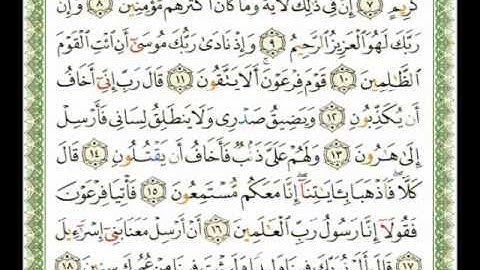 كَرِيمٍ ٧ إِنَّ فِي ذَٰلِكَ لَآيَةً وَمَا كَانَ أَكْثَرُهُم مُّؤْمِنِينَ ٨ وَإِنَّ
رَبَّكَ لَهُوَ الْعَزِيزُ الرَّحِيمُ ٩ وَإِذْ نَادَىٰ رَبُّكَ مُوسَىٰٓ أَنِ ائْتِ الْقَوْمَ
الظَّالِمِينَ ١٠ قَوْمَ فِرْعَوْنَ أَلَا يَتَّقُونَ ١١ قَالَ رَبِّ إِنِّيٓ أَخَافُ
أَن يُكَذِّبُونِ ١٢ وَيَضِيقُ صَدْرِي وَلَا يَنطَلِقُ لِسَانِي فَأَرْسِلْ
إِلَىٰ هَٰرُونَ ١٣ وَلَهُمْ عَلَيَّ ذَنۢبٌ فَأَخَافُ أَن يَقْتُلُونِ ١٤ قَالَ
كَلَّا فَاذْهَبَا بِـَٔايَٰتِنَآ إِنَّا مَعَكُم مُّسْتَمِعُونَ ١٥ فَأْتِيَا فِرْعَوْنَ
فَقُولَآ إِنَّا رَسُولُ رَبِّ الْعَٰلَمِينَ ١٦ أَنْ أَرْسِلْ مَعَنَا بَنِيٓ إِسْرَٰٓءِيلَ
١٧ قَالَ أَلَمْ نُرَبِّكَ فِينَا وَلِيدًا وَلَبِثْتَ فِينَا مِنْ عُمُرِكَ سِنِينَ ١٨